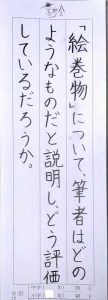 「絵巻物」について、筆者はどの
ようなものだと説明し、どう評価
しているだろうか。